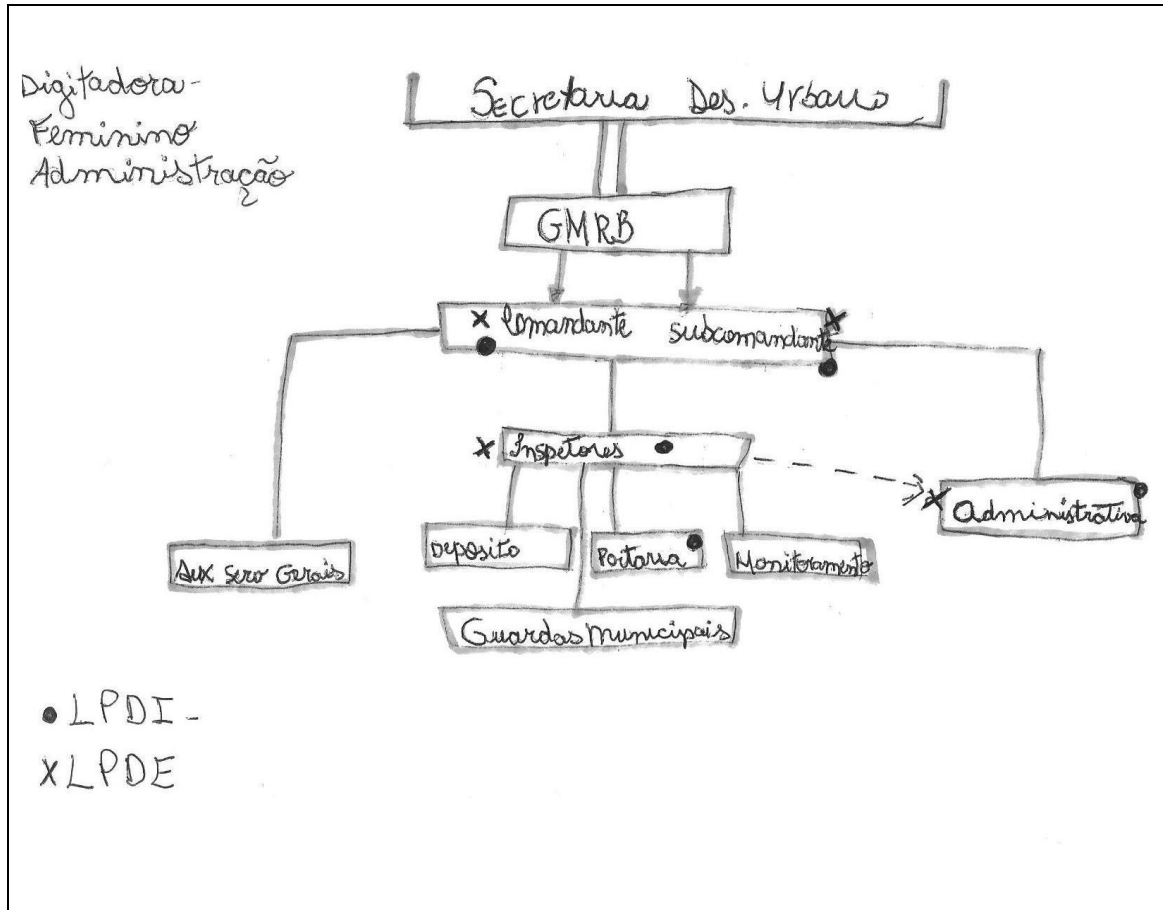 Digitadora-
Feminino
Administração
Secretaria Des. Urbano
GMRB
x Comandante subcomandante x
x Inspetores
x Administrativa
Deposito
Portaria
Monitoramento
Aux Serv Gerais
Guardas Municipais
• LPDI -
x LPDE